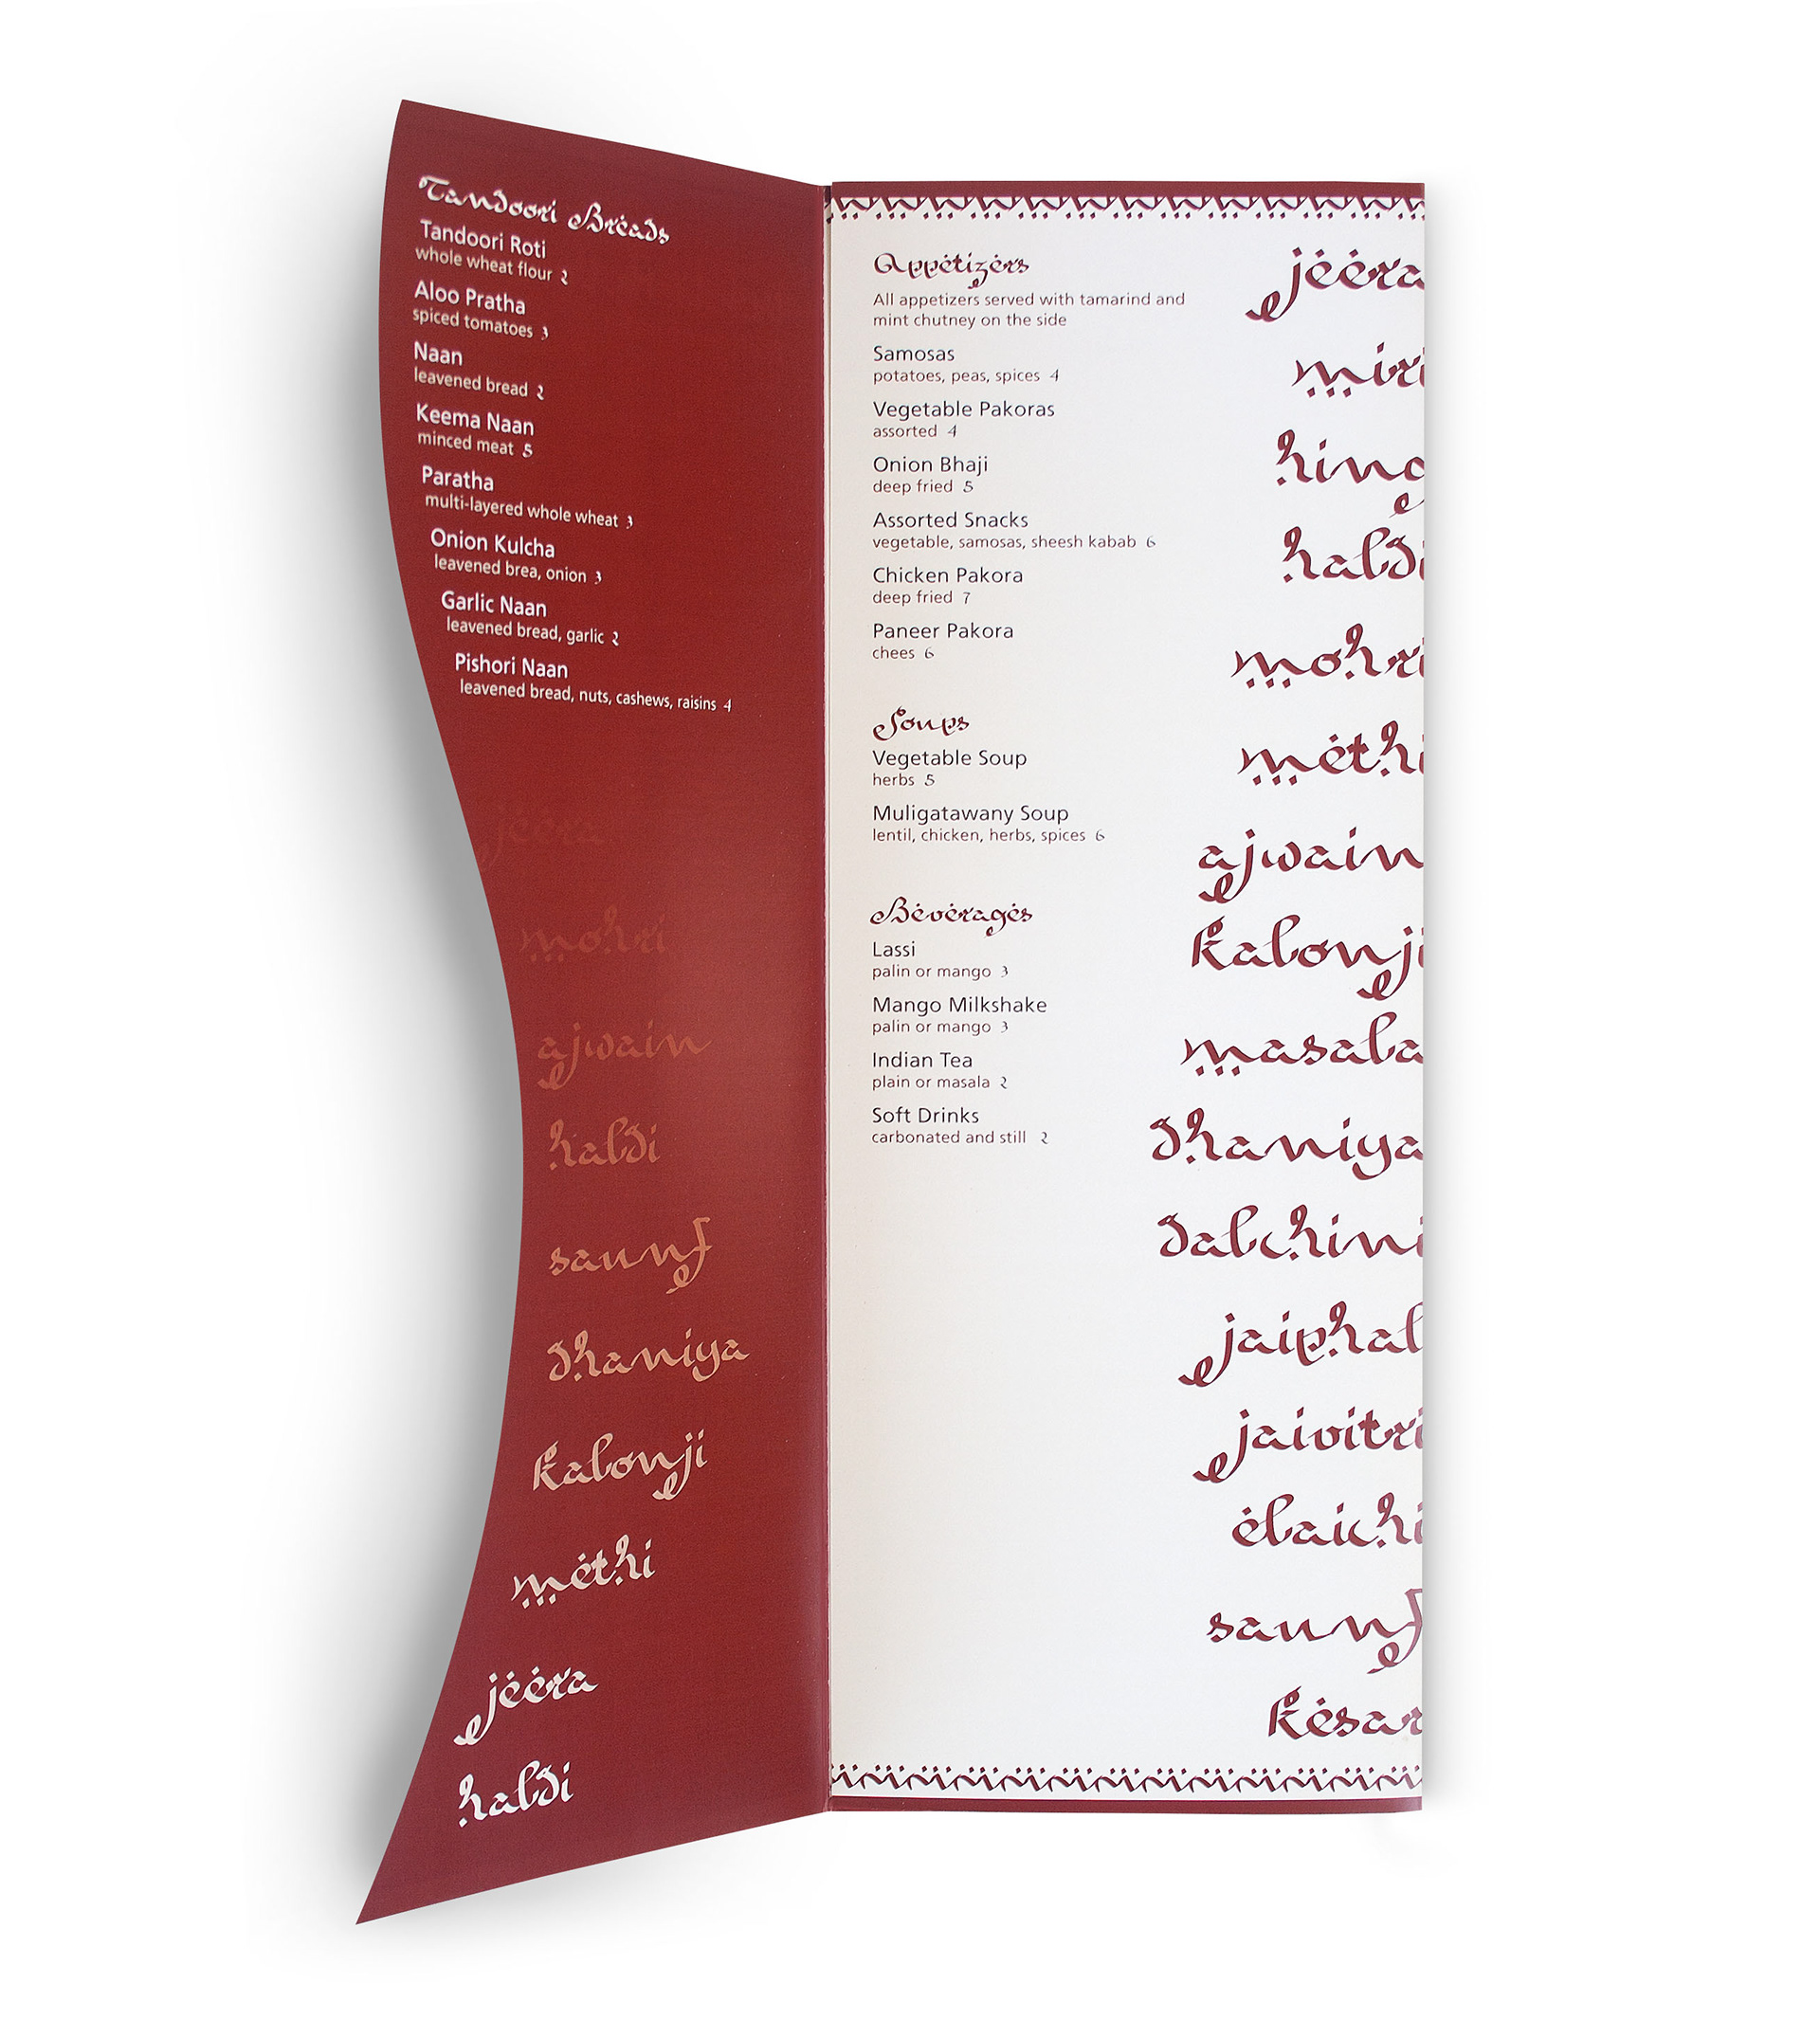 Tandoori Breads
Tandoori Roti
whole wheat flour 2
Aloo Pratha
spiced tomatoes 3
Naan
leavened bread 2
Keema Naan
minced meat 5
Paratha
multi-layered whole wheat 3
Onion Kulcha
leavened brea, onion 3
Garlic Naan
leavened bread, garlic 2
Pishori Naan
leavened bread, nuts, cashews, raisins 4
jeera
mohri
ajwain
haldi
saunf
dhaniya
kalonji
methi
jeera
haldi
Appetizers
All appetizers served with tamarind and
mint chutney on the side
Samosas
potatoes, peas, spices 4
Vegetable Pakoras
assorted 4
Onion Bhaji
deep fried 5
Assorted Snacks
vegetable, samosas, sheesh kabab 6
Chicken Pakora
deep fried 7
Paneer Pakora
chees 6
Soups
Vegetable Soup
herbs 5
Muligatawany Soup
lentil, chicken, herbs, spices 6
Beverages
Lassi
palin or mango 3
Mango Milkshake
palin or mango 3
Indian Tea
plain or masala 2
Soft Drinks
carbonated and still 2
jeera
miri
hing
haldi
mohri
methi
ajwain
kalonji
masala
dhaniya
dalchini
jaiphal
jaivitri
elaichi
saunf
kesar